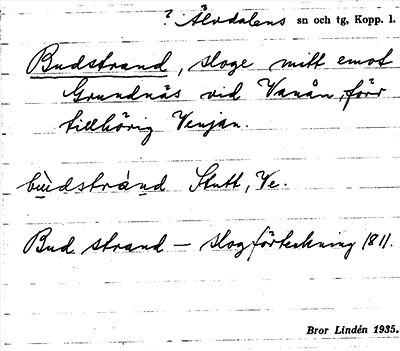 ? Älvdalens sn och tg, Kopp. l.
Budstrand, sloge mitt emot
Grundnäs vid Vanån, förr
tillhörig Venjan.
bùdstrànd Stutt, Ve.
Bud strand – slogförteckning 1811.
Bror Lindén 1935.